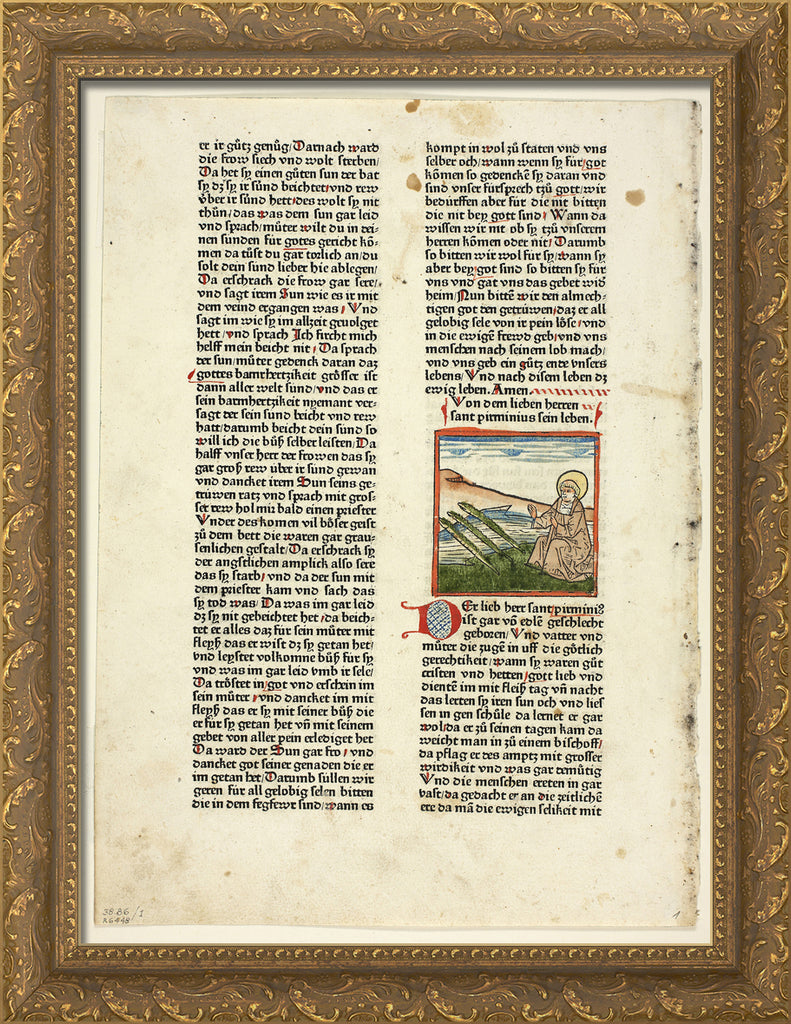 er ir gůtz genůg/Darnach ward
die frow siech vnd wolt sterben/
Da het sy einen gůten sun der bat
sy dz sy ir sünd beichtet/vnd rew
v̈ber ir sünd hett/des wolt sy nit
thůn/das was dem sun gar leid
vnd sprach/můter wilt du in dei-
nen sunden für gotes gericht kö-
men da tůst du gar torlich an/du
solt dein sund lieber hie ablegen/
Da erschrack die frow gar sere/
vnd sagt irem Sun wie es ir mit
dem veind ergangen was/Vnd
sagt im wie sy im allzeit geuolget
hett/vnd sprach Ich fircht mich
helff mein beicht nit/Da sprach
der sun/můter gedenck daran daz
gottes barmhertzikeit grösser ist
dann aller welt sund/vnd das er
sein barmhertzikeit nyemant ver-
sagt der sein sund beicht vnd rew
hatt/darumb beicht dein sund so
will ich die bůß selber leisten/Da
halff vnser herr der frowen das sy
gar groß rew vber ir sund gewan
vnd dancket irem Sun seins ge-
trüwen ratz vnd sprach mit gros-
ser rew hol mir bald einen priester
Vnder des komen vil böser geist
zů dem bett die waren gar grau-
senlichen gestalt/Da erschrack sy
der angstlichen amplick also sere
das sy starb/vnd da der sun mit
dem priester kam vnd sach das
sy tod was/Da was im gar leid
dz sy nit gebeichtet het/da beich-
tet er alles daz für sein můter mit
fleyß das er wist dz sy getan het/
vnd leystet volkomne bůß für sy
vnd was im gar leid vmb ir sele/
Da tröstet in/got vnd erschein im
sein můter/vnd dancket im mit
fleyß das er sy mit seiner bůß die
er für sy getan het vn̄ mit seinem
gebet von aller pein erlediget het
Da ward der Sun gar fro/vnd
dancket got seiner genaden die er
im getan het/Darumb süllen wir
geren für all gelobig selen bitten
die in dem fegfewr sind/wann es
kompt in wol zů staten vnd vns
selber och/wann wenn sy für/got
kömen so gedenckē sy daran vnd
sind vnser fürsprech tzů gott/wir
bedürffen aber für die nit bitten
die nit bey gott sind/Wann da
wissen wir nit ob sy tzů vnserem
herren kömen oder nit/Darumb
so bitten wir wol für sy/wann sy
aber bey/got sind so bitten sy für
vns vnd gät vns das gebet wid̄
heim/Nun bittē wir den almech-
tigen got den getrüwen/daz er all
gelobig sele von ir pein löse/vnd
in die ewige frewd geb/vnd vns
menschen nach seinem lob mach/
vnd vns geb ein gůtz ende vnsers
lebens/Vnd nach disem leben dz
ewig leben. Amen.
Von dem lieben herren
sant pirminius sein leben.
DEr lieb herr sant/pirminiꝰ
ist gar vō edlē geschlecht
geboren/Vnd vatter vnd
můter die zugē in uff die götlich
gerechtikeit/wann sy waren gůt
cristen vnd hetten/gott lieb vnd
dientē im mit fleiß tag vn̄ nacht
das lerten sy iren sun och vnd lies
sen in gen schůle da lernet er gar
wol/da er zů seinen tagen kam da
weicht man in zů einem bischoff/
da pflag er des amptz mit grosser
wirdikeit vnd was gar demůtig
Vnd die menschen ereten in gar
vast/da gedacht er an die zeitlichē
ere da mā die ewigen selikeit mit
38.86/1
R6448
1